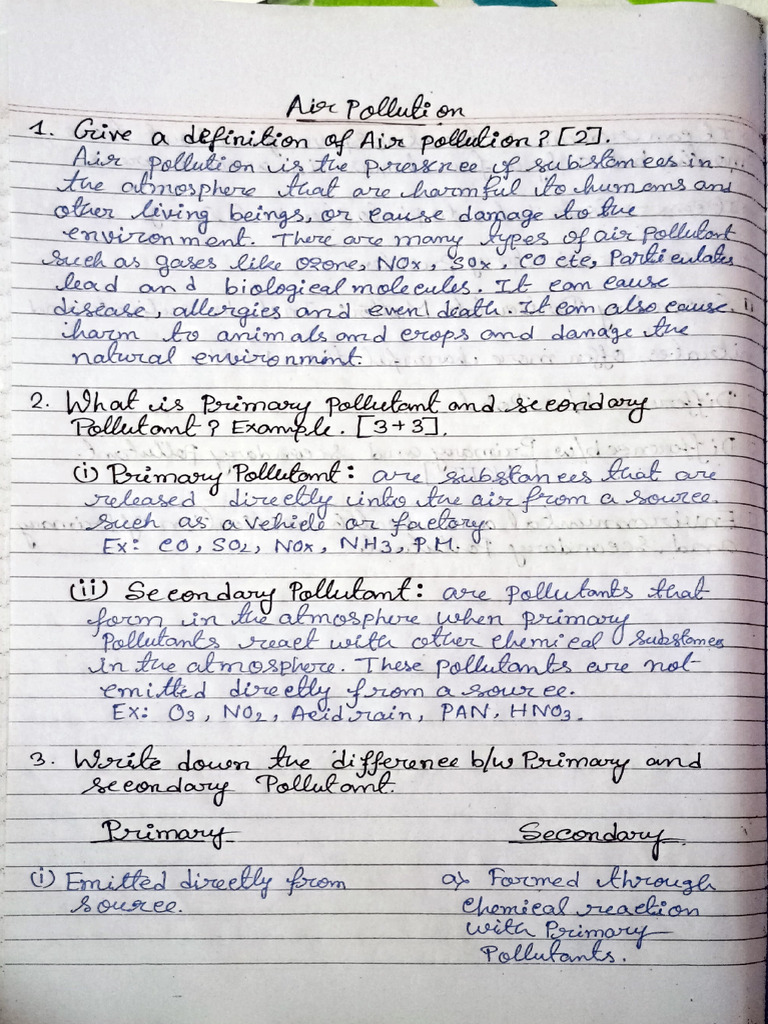 Air Pollution
1. Give a definition of Air pollution? [2].
Air pollution is the presence of substances in
the atmosphere that are harmful to humans and
other living beings, or cause damage to the
environment. There are many types of air Pollutant
such as gases like ozone, NOx, SOx, CO etc, Particulates
lead and biological molecules. It can cause
disease, allergies and even death. It can also cause
harm to animals and crops and danage the
natural environment.
2. What is Primary Pollutant and secondary
Pollutant? Example. [3+3].
(i) Primary Pollutant: are substances that are
released directly into the air from a source.
such as a vehicle or factory.
Ex: CO, SO2, NOx, NH3, P.M.
(ii) Secondary Pollutant: are Pollutants that
form in the atmosphere when primary
Pollutants react with other chemical substances
in the atmosphere. These pollutants are not
emitted directly from a source.
Ex: O3, NO2, Acid rain, PAN, HNO3.
3. Write down the difference b/w Primary and
secondary Pollutant.
Primary Secondary
(i) Emitted directly from a) Formed through
source. chemical reaction
with Primary
Pollutants.